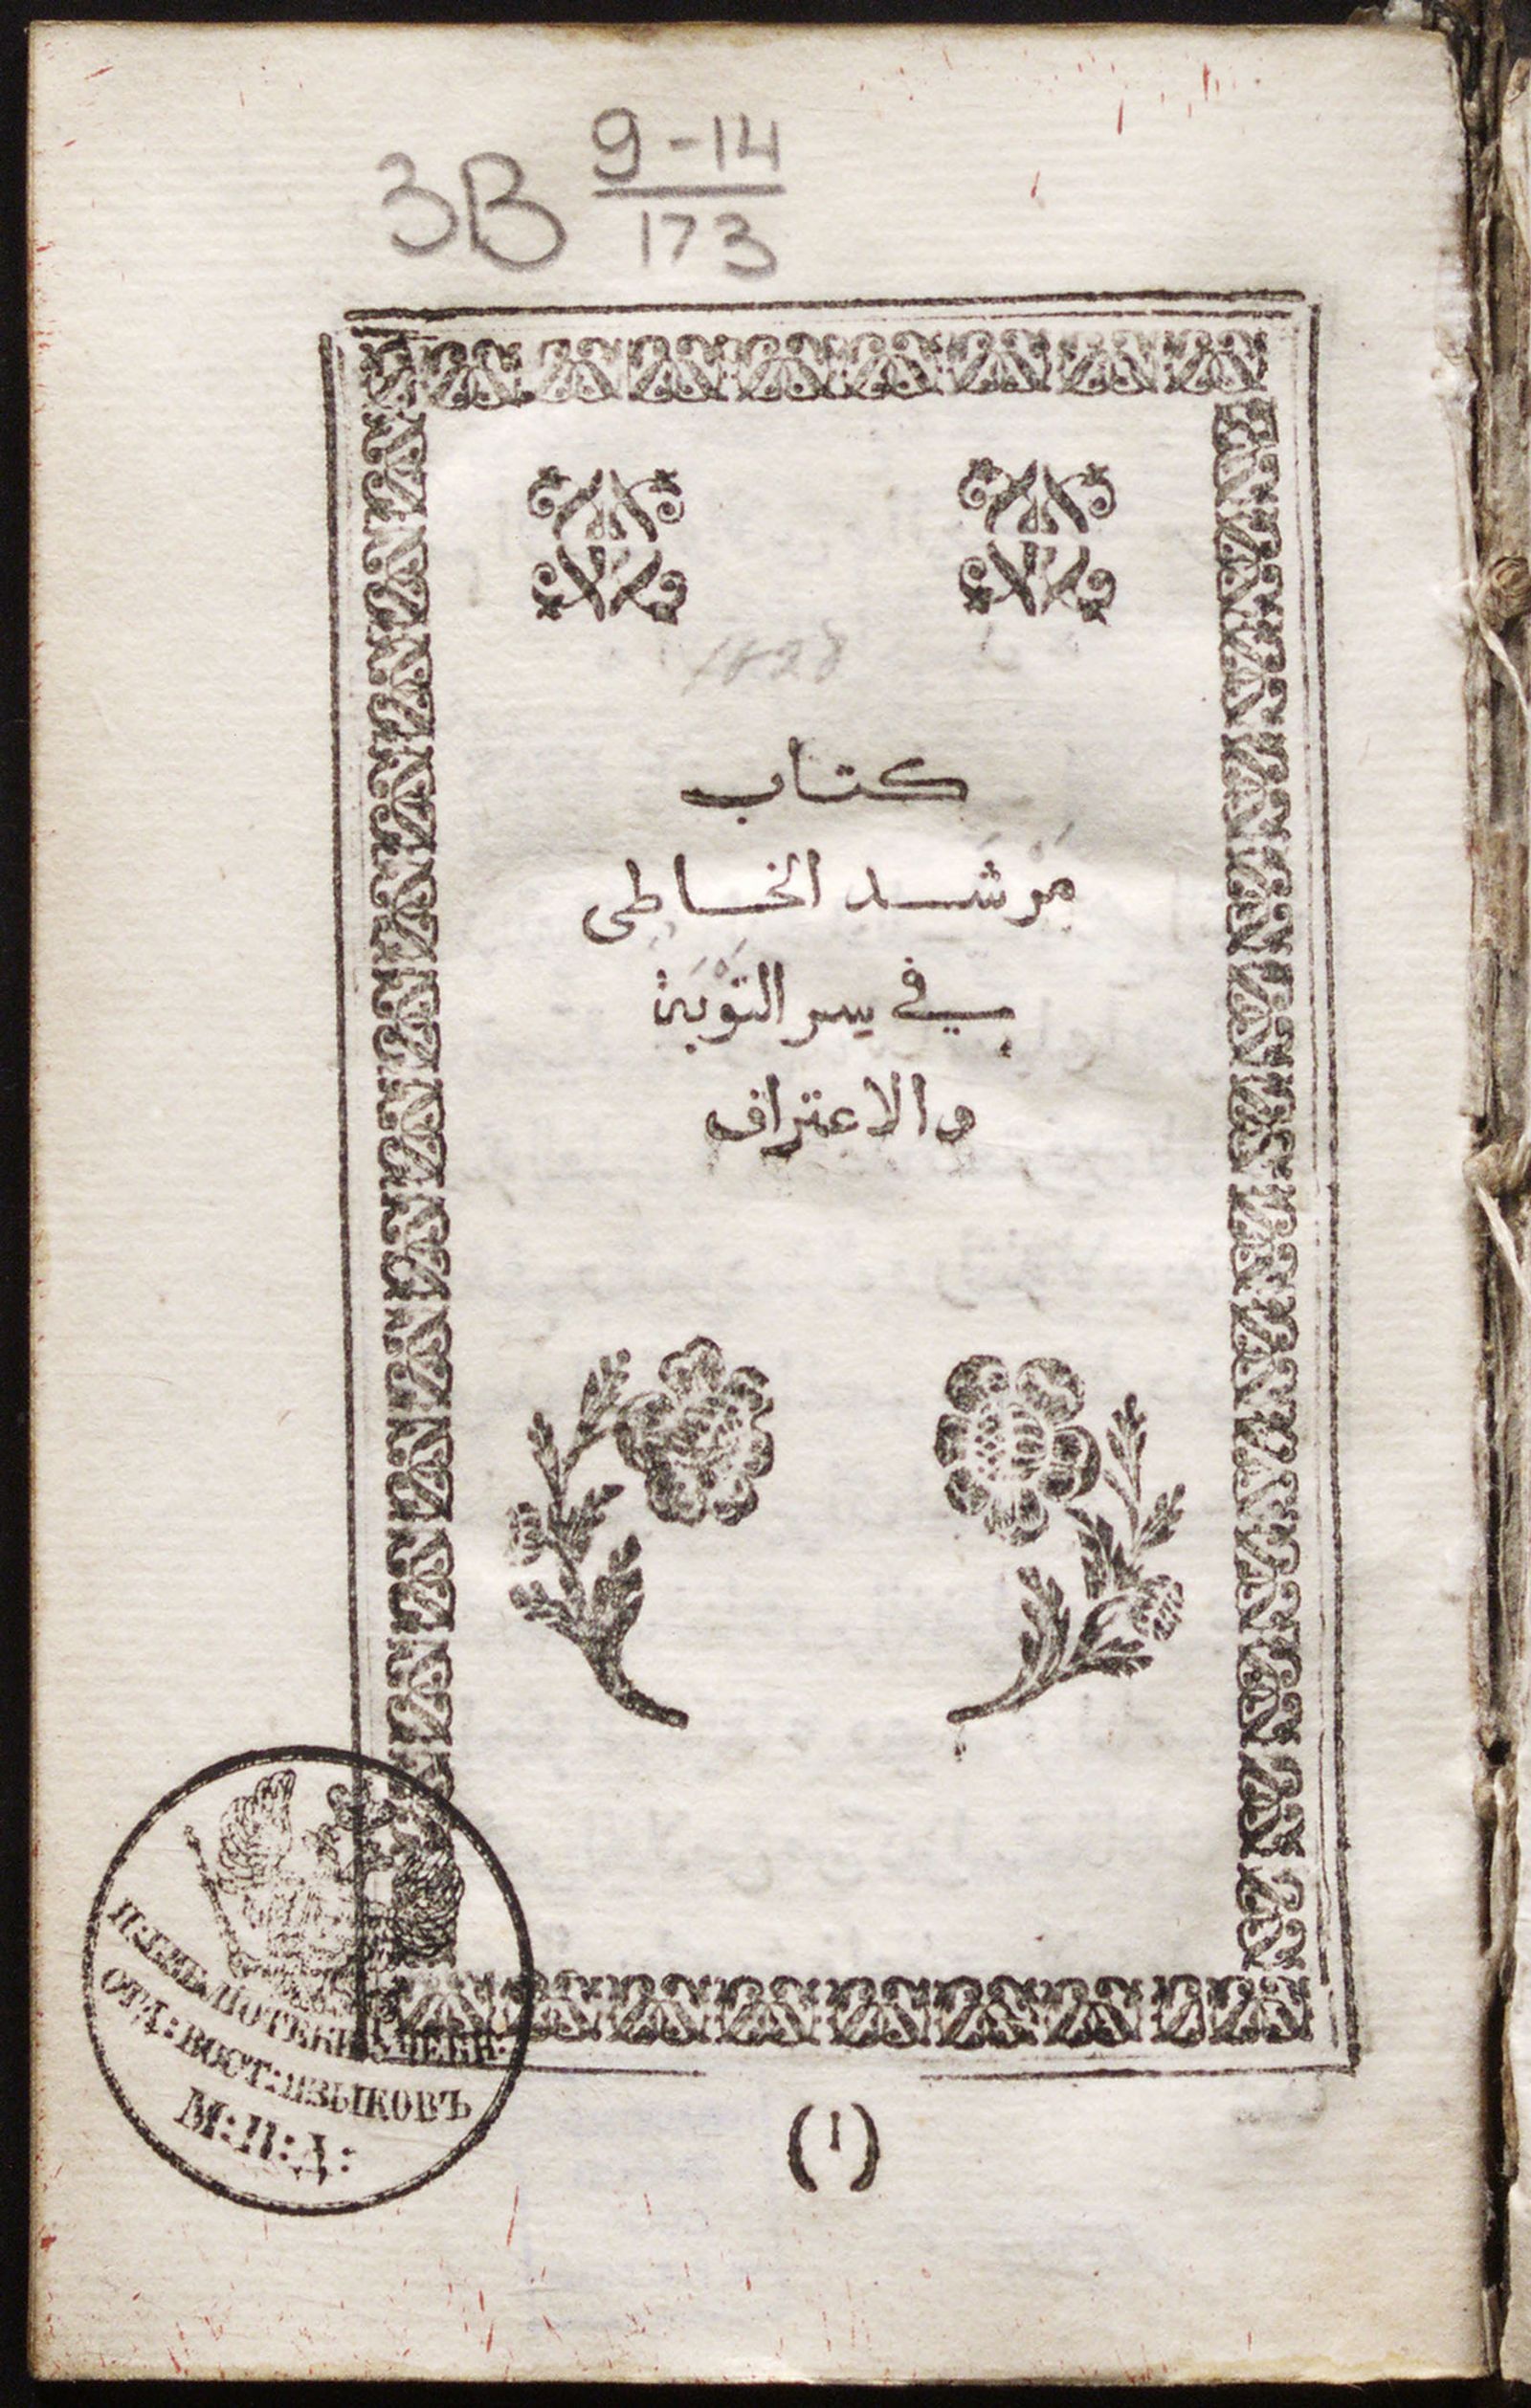 ЗВ 9-14
173
1828
كتاب
مَرْشَد الخاطى
في سر التَوْبَة
والاعتراف
(١)
БИБЛIОТЕКИ УЧЕБН:
ОТД: ВОСТ: ЯЗЫКОВЪ
М: И: Д: